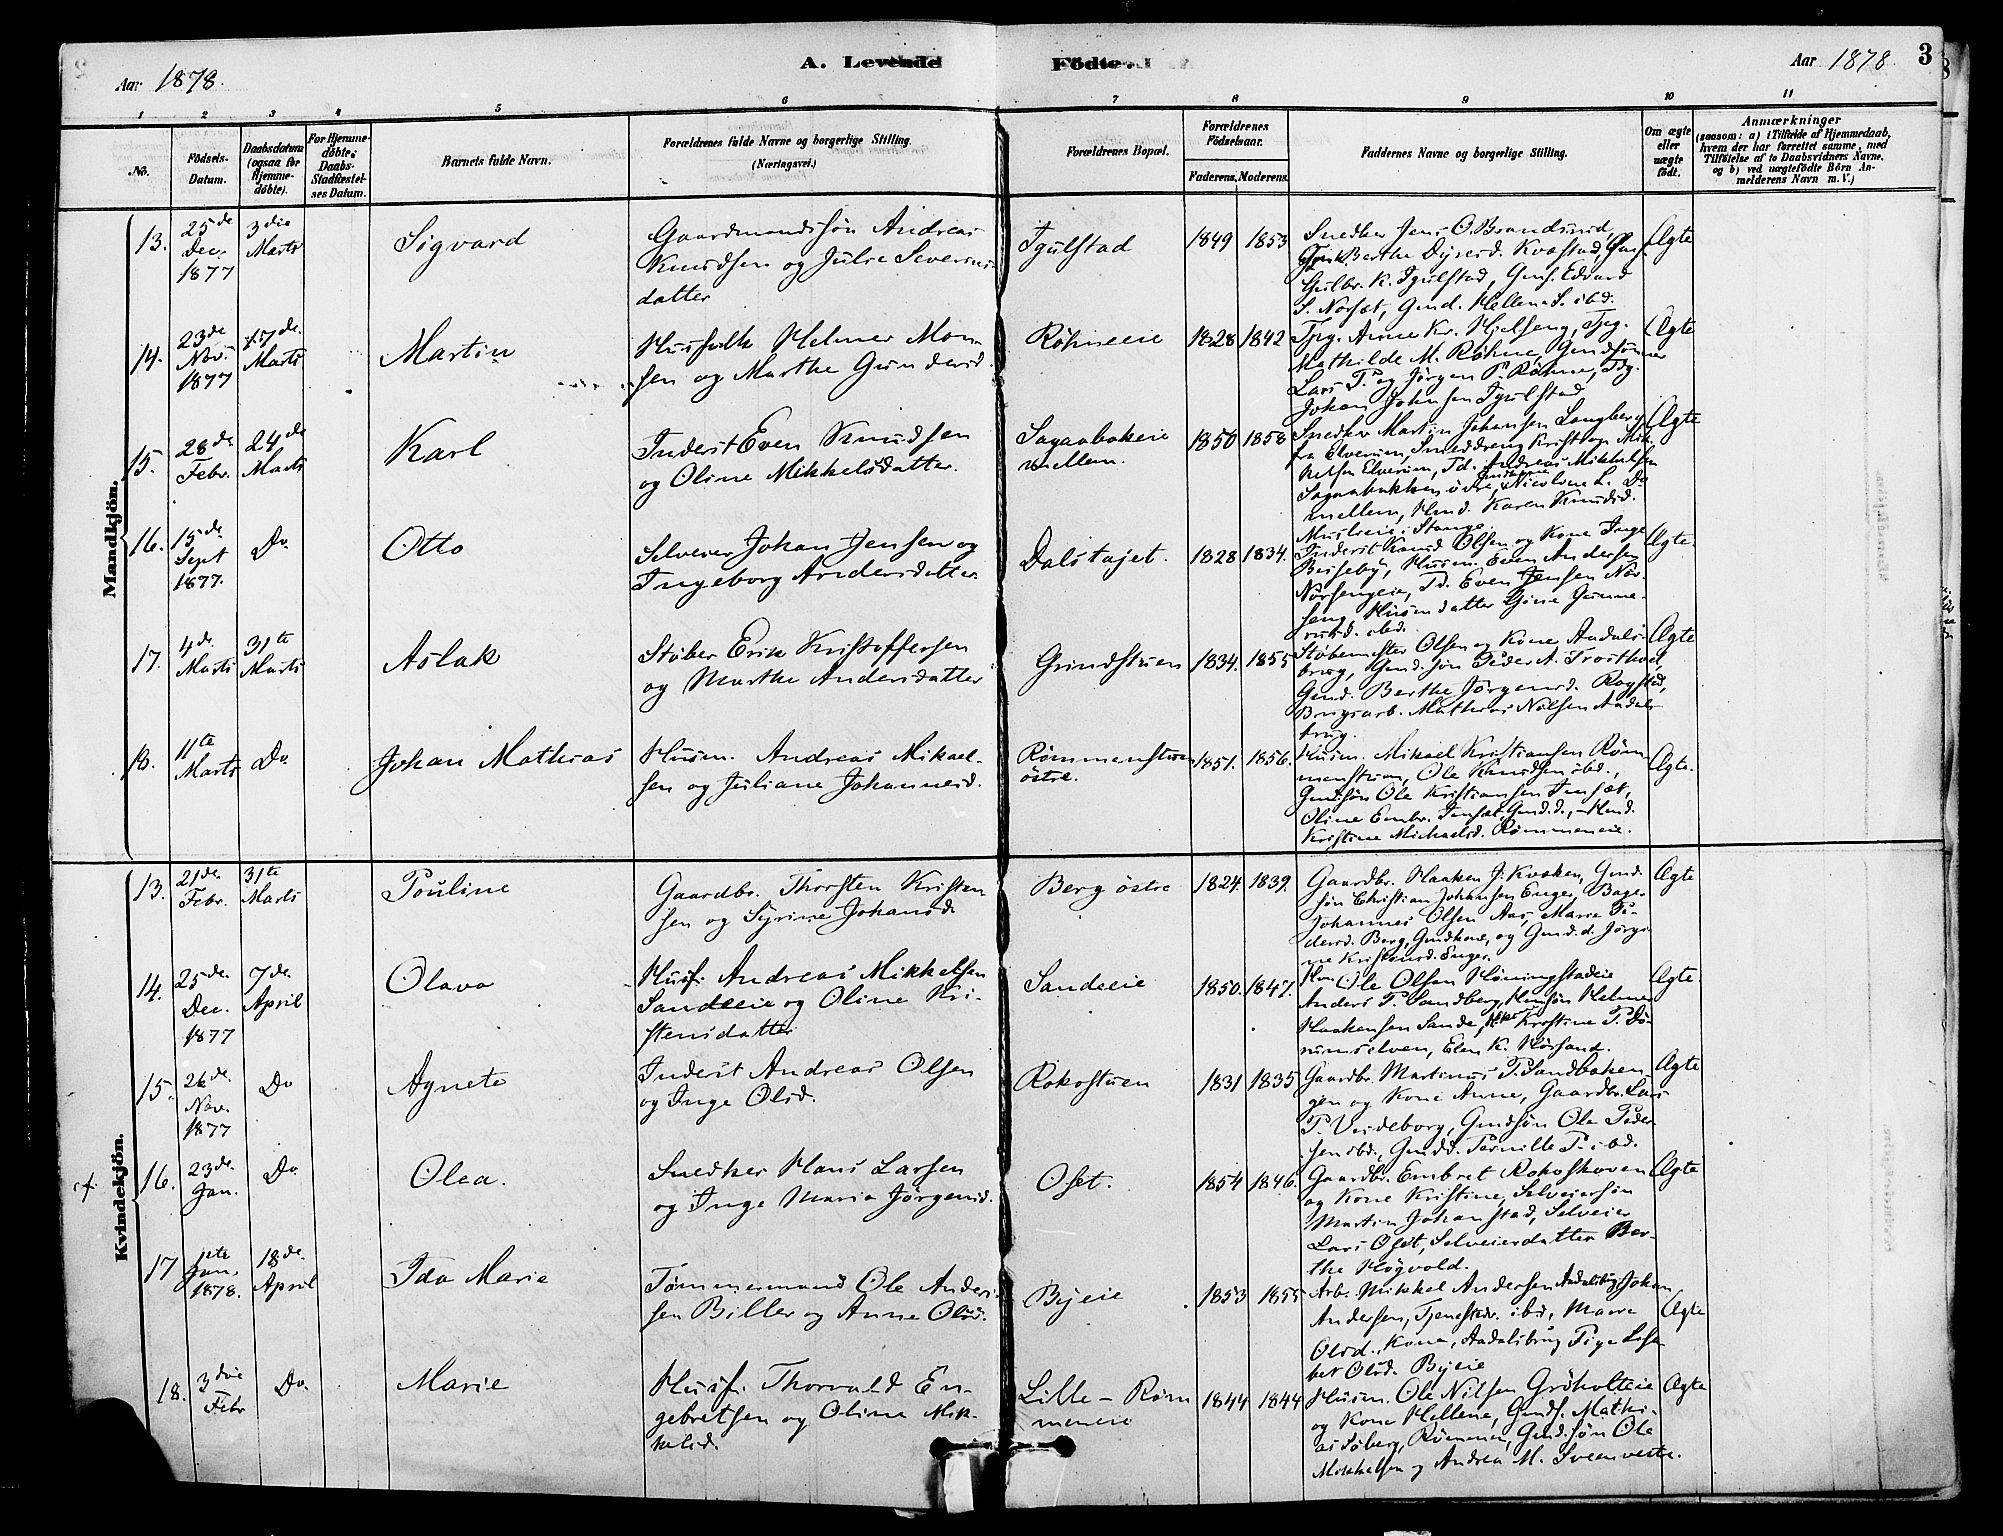 Aar 1878.
A. Levende Födte.
Aar 1878.
3
1 2 3 4 5 6 7 8 9 10 11
No.
Födsels-Datum.
Daabsdatum (ogsaa for Hjemme-döbte).
For Hjemme-döbte; Daabs-Stadfæstel-ses Datum.
Barnets fulde Navn.
Forældrenes fulde Navne og borgerlige Stilling. (Næringsvei.)
Forældrenes Bopæl.
Forældrenes Födselsaar.
Faderens. Moderens.
Faddernes Navne og borgerlige Stilling.
Om ægte eller uægte födt.
Anmærkninger
(saasom: a) i Tilfælde af Hjemmedaab, hvem der har forrettet samme, med Tilföielse af to Daabsvidners Navne, og b) ved uægtefödte Börn An-melderens Navn m. V.)
Mandkjön.
13. 25de Dec. 1877
3die Marts
Sigvard
Gaardmandssøn Andreas
Knudsen og Julie Severins-
datter
Igulstad
1849 1853
Snedker Jens O. Brandsrud,
Berthe Dyresd. Kvæstad,
Gulbr. K. Igulstad, Gmf. Edvard
S. Norsæt, Gmd. Hellene S. ibd.
Ægte
14. 23de Nov. 1877
17de Marts
Martin
Husfolk Helmer Mon-
sen og Marthe Gundersd.
Røhneeie
1828 1842
Tpg. Anne Kr. Hjelseng, Tpg.
Mathilde M. Røhne, Gmdsønner
Lars P. og Jörgen P. Røhne,
Johan Johnsen Igulstad
Ægte
15. 28de Febr.
24de Marts
Karl
Inderst Even Knudsen
og Oline Mikkelsdatter.
Sagaabakeie
mellem.
1850 1858
Snedker Martin Johansen Langberg
fra Elverum, Smeddreng Kristian Mik-
kelsen Elverum, Td. Andreas Mikkelsen
Sagaabakken øvre, Nicoline L. Do
mellem, Hmd. Karen Knudsd.
Musleeie, Stange.
Ægte
16. 15de Sept 1877.
Do
Otto
Selveier Johan Jensen og
Ingeborg Andersdatter
Dalstøjet.
1828 1834.
Inderst Knud Olsen og Kone Inge
Berseby, Husm. Even Andersen
Norsengeie, Td. Even Jensen Nor-
seng, Husmdatter Gine Gunne-
rusd. ibd.
Ægte.
17. 4de Marts
31te Marts
Aslak
Støber Erik Kristoffersen
og Marthe Andersdatter
Grindstuen
1834. 1855
Støbemester Olsen og Kone Aadals-
brug, Gmd.søn Peder A. Frosthol,
Gmd. Berthe Jörgensd. Rogstad,
Brugsarb. Mathias Nilsen Aadals-
brug.
Ægte
18. 11te Marts
Do
Johan Mathias
Husm. Andreas Mikael-
sen og Juliane Johannesd.
Rømmenstuen
østre.
1851. 1856.
Husm. Mikael Kristiansen Røm-
menstuen, Ole Knudsen ibd.,
Gmdsøn Ole Kristiansen Imsæt,
Oline Embr. Imsæt Gmd.d., Hmd.
Kristine Michaelsd. Rømmeneie.
Ægte.
Kvindekjön.
13. 21de Febr.
31te Marts
Pouline
Gaardbr. Thorsten Kristen-
sen og Syrine Johansd.
Berg østre
1824. 1839.
Gaardbr. Haaken J. Kvaken, Gmd.
søn Christian Johansen Enger, Bager
Johannes Olsen Aas, Marie Pe-
dersd. Berg, Gmdkone, og Gmd.d. Jørgi-
ne Kristensd. Enger.
Ægte
14. 25de Dec. 1877
7de April
Olava
Husf. Andreas Mikkelsen
Sandeeie og Oline Kri-
stensdatter
Sandeeie
1850. 1847.
Hm. Ole Olsen Hôningstadeie
Anders P. Sandberg, Hmsøn Helmer
Haakensen Sande, Kristine P. Dø-
rumselven, Elen K. Horsand.
Ægte.
15. 26de Nov. 1877
Do
Agnete
Inderst Andreas Olsen
og Inge Olsd.
Rokostuen
1831 1835
Gaardbr. Martinus P. Sandbaken-
gen og Kone Anne, Gaardbr. Lars
P. Veideborg, Gmdsøn Ole Peder-
sen ibd., Gmdd. Pernille P. ibd.
Ægte
16. 23de Jan.
Do
Olea.
Snedker Hans Larsen
og Inge Maria Jörgensd.
Oset.
1854 1846.
Gaardbr. Embret Rokoskoven
og Kone Kristine, Selveiersøn
Martin Johanstad, Selveier
Lars Oset, Selveierdatter Ber-
the Høgvold.
Ægte
17 1ste Jan. 1878.
18de April
Ida Marie
Tømmermand Ole Ander-
sen Biller og Anne Olsd.
Byeie
1853 1855
Arb. Mikkel Andersen Aadalsbrug, Johan
Andersen, Tjenestedr. ibd, Maren
Olsd., Kone, Aadalsbrug, Pige Lisa-
bet Olsd. Byeie
Ægte
18. 3die Febr
Do.
Marie
Husf. Thorvald En-
gebretsen og Oline Mik-
kelsd.
Lille-Røm
meneie
1844 1844
Husm. Ole Nilsen Grøholteie
og Kone Hellene, Gmds. Mathi-
as Søberg, Rømmen, Gmd.søn Ole
Mikkelsen og Andrea M. Sveen vestre.
Ægte